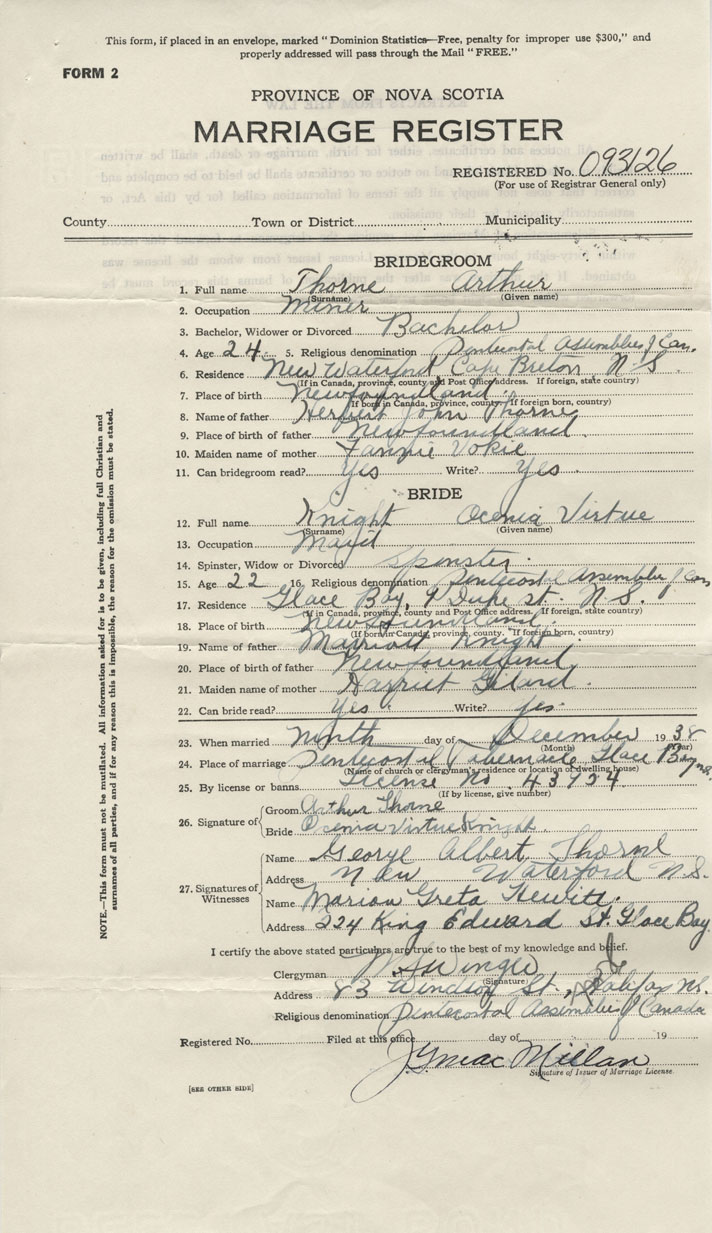 This form, if placed in an envelope, marked "Dominion Statistics—Free, penalty for improper use $300," and
properly addressed will pass through the Mail "FREE."
FORM 2
PROVINCE OF NOVA SCOTIA
MARRIAGE REGISTER
REGISTERED No. 093126
(For use of Registrar General only)
County Town or District Municipality
BRIDEGROOM
1. Full name Thorne Arthur
(Surname) (Given name)
2. Occupation Miner
3. Bachelor, Widower or Divorced Bachelor
4. Age 24 5. Religious denomination Pentecostal Assemblies of Can.
6. Residence New Waterford Cape Breton N.S.
(If in Canada, province, county and Post Office address. If foreign, state country)
7. Place of birth Newfoundland
(If born in Canada, province, county. If foreign born, country)
8. Name of father Herbert John Thorne
9. Place of birth of father Newfoundland
10. Maiden name of mother Fannie Vokie
11. Can bridegroom read? Yes Write? Yes
BRIDE
12. Full name Knight Ocenia Virtue
(Surname) (Given name)
13. Occupation Maid
14. Spinster, Widow or Divorced Spinster
15. Age 22 16. Religious denomination Pentecostal Assemblies of Can
17. Residence Glace Bay, 9 Duke st. N.S.
(If in Canada, province, county and Post Office address. If foreign, state country)
18. Place of birth Newfoundland
(If born in Canada, province, county. If foreign born, country)
19. Name of father Knight
20. Place of birth of father Newfoundland
21. Maiden name of mother Harriet
22. Can bride read? Yes Write? yes
23. When married Ninth day of December 1938
(Month) (Year)
24. Place of marriage Pentecostal Tabernacle Glace Bay N.S.
(Name of church or clergyman's residence or location of dwelling house)
25. By license or banns License No. 43724
(If by license, give number)
26. Signature of Groom Arthur Thorne
Bride Ocenia Virtue Knight
27. Signatures of Witnesses
Name George Albert Thorne
Address New Waterford N.S.
Name Marion Greta Hewitt
Address 224 King Edward St. Glace Bay
I certify the above stated particulars are true to the best of my knowledge and belief.
Clergyman
(Signature)
Address 83 Windsor St., Halifax N.S.
Religious denomination Pentecostal Assemblies of Canada
Registered No. Filed at this office day of 19
J. G. MacMillan
Signature of Issuer of Marriage License.
[SEE OTHER SIDE]
NOTE.—This form must not be mutilated. All information asked for is to be given, including full Christian and
surnames of all parties, and if for any reason this is impossible, the reason for the omission must be stated.